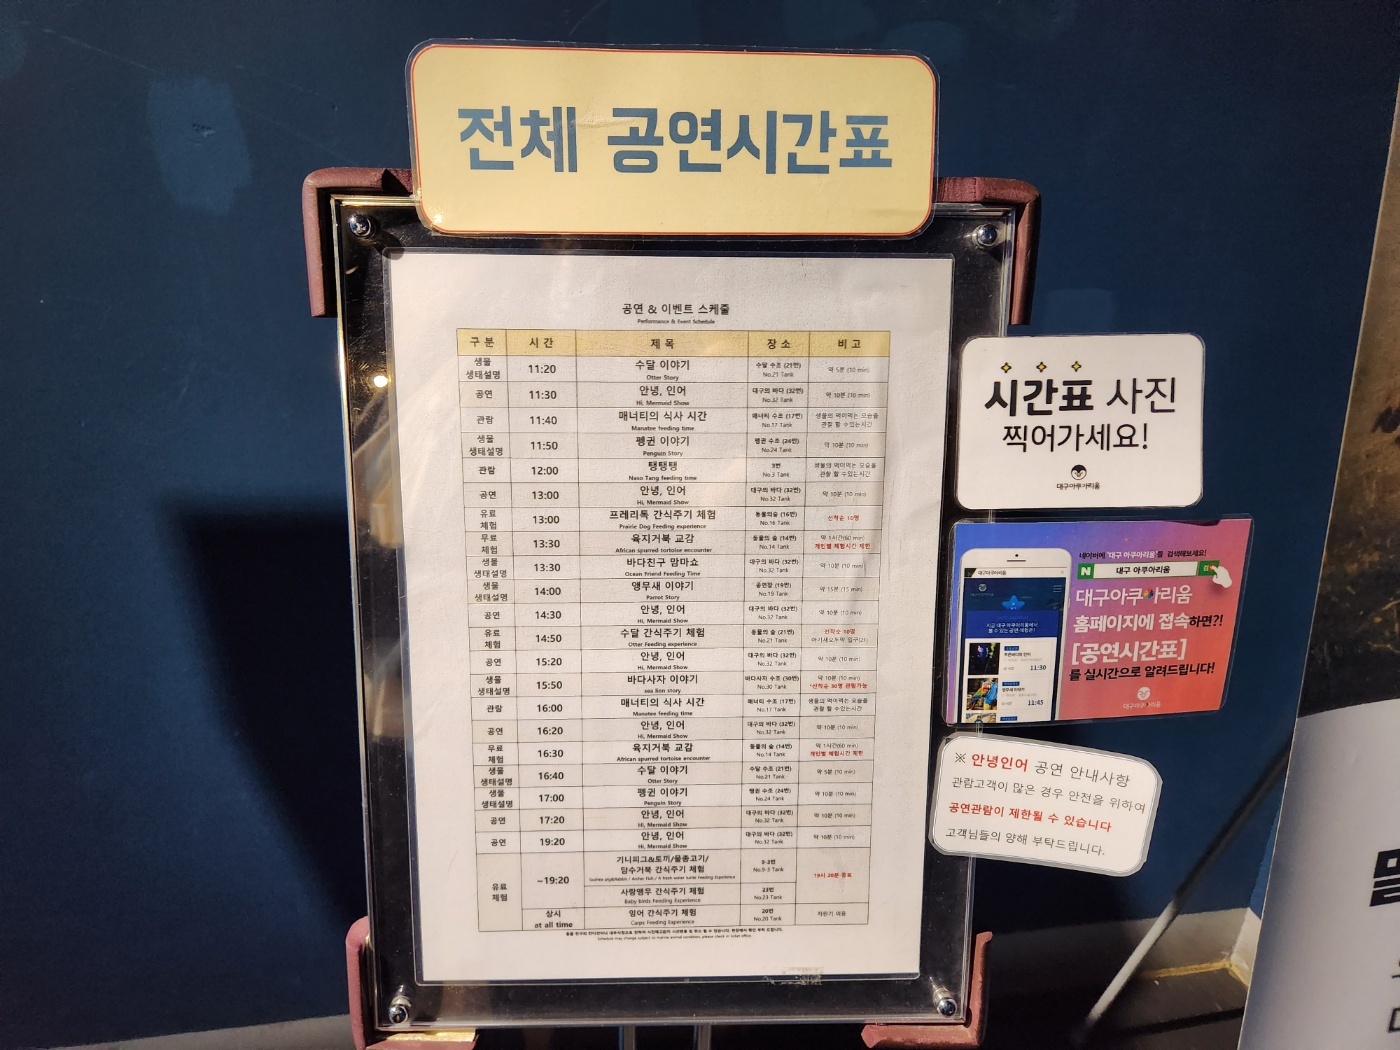 전체 공연시간표
공연 & 이벤트 스케줄
Performance & Event Schedule
구 분 시 간 제 목 장 소 비 고
생물 생태설명 11:20 수달 이야기 Otter Story 수달 수조 (21번) No.21 Tank 약 5분 (10 min)
공연 11:30 안녕, 인어 Hi, Mermaid Show 대구의 바다 (32번) No.32 Tank 약 10분 (10 min)
관람 11:40 매너티의 식사 시간 Manatee feeding time 매너티 수조 (17번) No.17 Tank 생물의 먹이먹는 모습을 관찰 할 수있는시간
생물 생태설명 11:50 펭귄 이야기 Penguin Story 펭귄 수조 (24번) No.24 Tank 약 10분 (10 min)
관람 12:00 탱탱탱 Naso Tang feeding time 3번 No.3 Tank 생물의 먹이먹는 모습을 관찰 할 수있는시간
공연 13:00 안녕, 인어 Hi, Mermaid Show 대구의 바다 (32번) No.32 Tank 약 10분 (10 min)
유료 체험 13:00 프레리독 간식주기 체험 Prairie Dog Feeding experience 동물의숲 (16번) No.16 Tank 선착순 10명
무료 체험 13:30 육지거북 교감 African spurred tortoise encounter 동물의 숲 (14번) No.14 Tank 약 1시간(60 min) 개인별 체험시간 제한
생물 생태설명 13:30 바다친구 맘마쇼 Ocean Friend Feeding Time 대구의 바다 (32번) No.32 Tank 약 10분 (10 min)
생물 생태설명 14:00 앵무새 이야기 Parrot Story 공연장 (19번) No.19 Tank 약 15분 (15 min)
공연 14:30 안녕, 인어 Hi, Mermaid Show 대구의 바다 (32번) No.32 Tank 약 10분 (10 min)
유료 체험 14:50 수달 간식주기 체험 Otter Feeding experience 동물의 숲 (21번) No.21 Tank 선착순 10명
공연 15:20 안녕, 인어 Hi, Mermaid Show 대구의 바다 (32번) No.32 Tank 약 10분 (10 min)
생물 생태설명 15:50 바다사자 이야기 sea lion story 바다사자 수조 (30번) No.30 Tank 약 10분 (10 min) *선착순 30명 관람가능
관람 16:00 매너티의 식사 시간 Manatee feeding time 매너티 수조 (17번) No.17 Tank 생물의 먹이먹는 모습을 관찰 할 수있는시간
공연 16:20 안녕, 인어 Hi, Mermaid Show 대구의 바다 (32번) No.32 Tank 약 10분 (10 min)
무료 체험 16:30 육지거북 교감 African spurred tortoise encounter 동물의 숲 (14번) No.14 Tank 약 1시간(60 min) 개인별 체험시간 제한
생물 생태설명 16:40 수달 이야기 Otter Story 수달 수조 (21번) No.21 Tank 약 5분 (10 min)
생물 생태설명 17:00 펭귄 이야기 Penguin Story 펭귄 수조 (24번) No.24 Tank 약 10분 (10 min)
공연 17:20 안녕, 인어 Hi, Mermaid Show 대구의 바다 (32번) No.32 Tank 약 10분 (10 min)
공연 19:20 안녕, 인어 Hi, Mermaid Show 대구의 바다 (32번) No.32 Tank 약 10분 (10 min)
유료 체험 ~19:20 기니피그&토끼/물총고기/ 담수거북 간식주기 체험 9-3번 No.9-3 Tank 19시 20분 종료
사랑앵무 간식주기 체험 Baby birds Feeding Experience 23번 No.23 Tank
상시 at all time 잉어 간식주기 체험 Carps Feeding Experience 20번 No.20 Tank 자판기 이용
Schedule may change subject to marine animal condition, please check in ticket office.
시간표 사진
찍어가세요!
대구아쿠아리움
네이버에 '대구 아쿠아리움'을 검색해보세요!
N 대구 아쿠아리움 검색
대구아쿠아리움
홈페이지에 접속하면?!
[공연시간표]
를 실시간으로 알려드립니다!
대구아쿠아리움
11:30
11:45
※ 안녕인어 공연 안내사항
관람고객이 많은 경우 안전을 위하여
공연관람이 제한될 수 있습니다
고객님들의 양해 부탁드립니다.